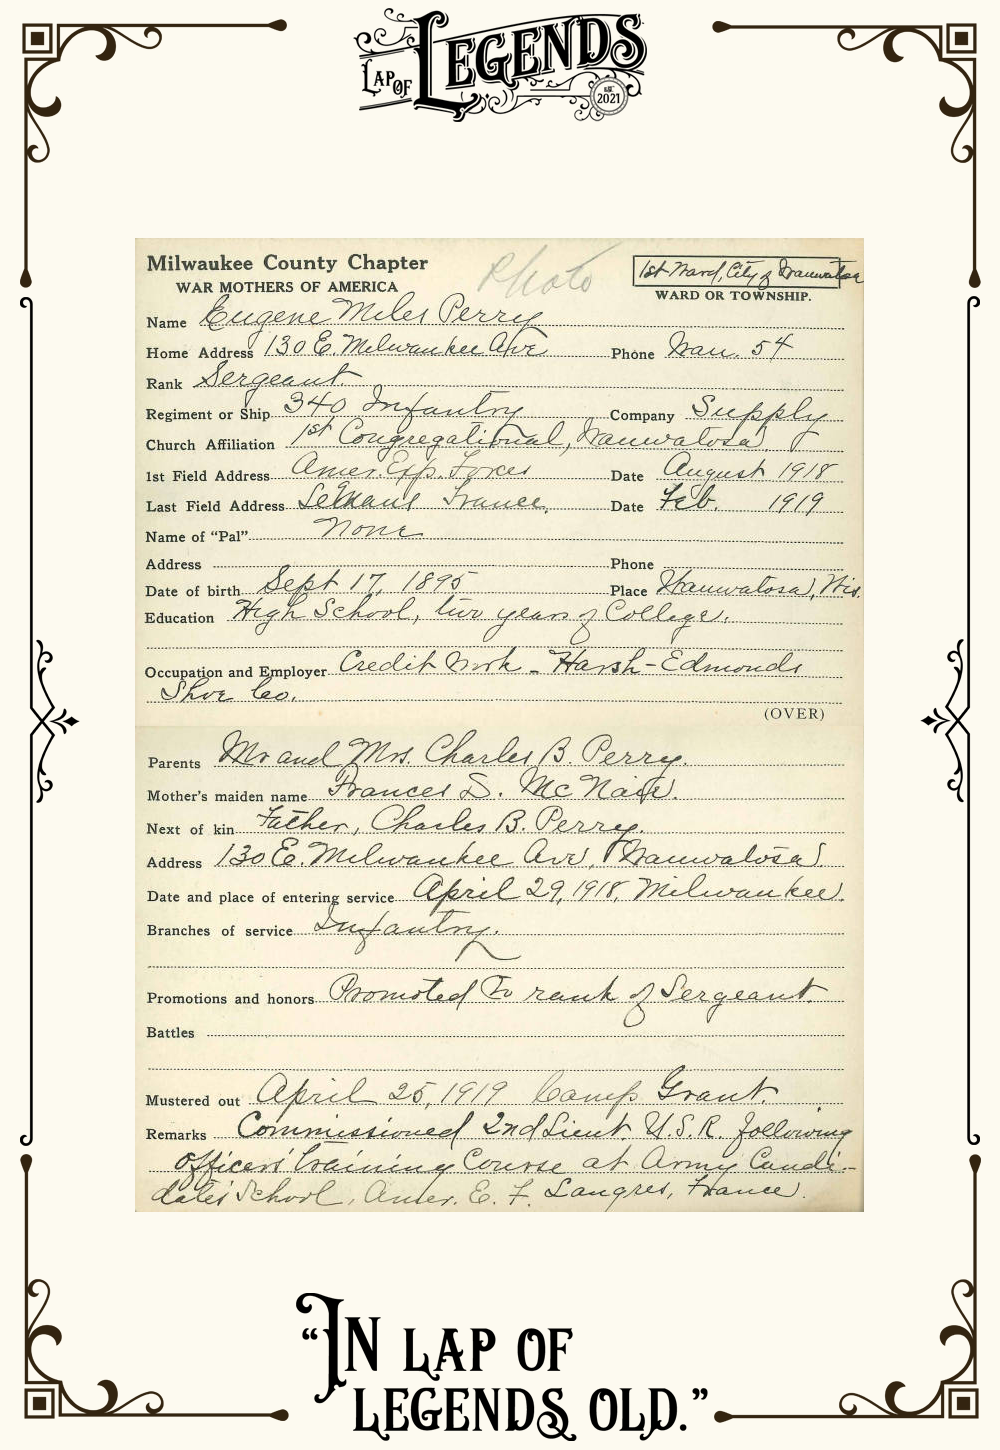 LAP OF LEGENDS
EST. 2021
Milwaukee County Chapter
WAR MOTHERS OF AMERICA
Photo
1st Ward, City of Wauwatosa
WARD OR TOWNSHIP.
Name Eugene Miles Perry
Home Address 130 E. Milwaukee Ave Phone Wau. 54
Rank Sergeant.
Regiment or Ship 340 Infantry Company Supply
Church Affiliation 1st Congregational, Wauwatosa
1st Field Address Amer. Exp. Forces Date August 1918
Last Field Address LeMans France. Date Feb. 1919
Name of "Pal" None
Address Phone
Date of birth Sept 17, 1895 Place Wauwatosa, Wis.
Education High School, two years of College.
Occupation and Employer Credit Work - Harsh-Edmonds
Shoe Co.
(OVER)
Parents Mr and Mrs. Charles B. Perry.
Mother's maiden name Frances S. McNair.
Next of kin Father, Charles B. Perry.
Address 130 E. Milwaukee Ave, Wauwatosa
Date and place of entering service April 29, 1918, Milwaukee.
Branches of service Infantry.
Promotions and honors Promoted to rank of Sergeant.
Battles
Mustered out April 25, 1919 Camp Grant.
Remarks Commissioned 2nd Lieut. U.S.R. following
Officers' Training Course at Army Candi-
dates' School, Amer. E. F. Langres, France.
"IN LAP OF
LEGENDS OLD."